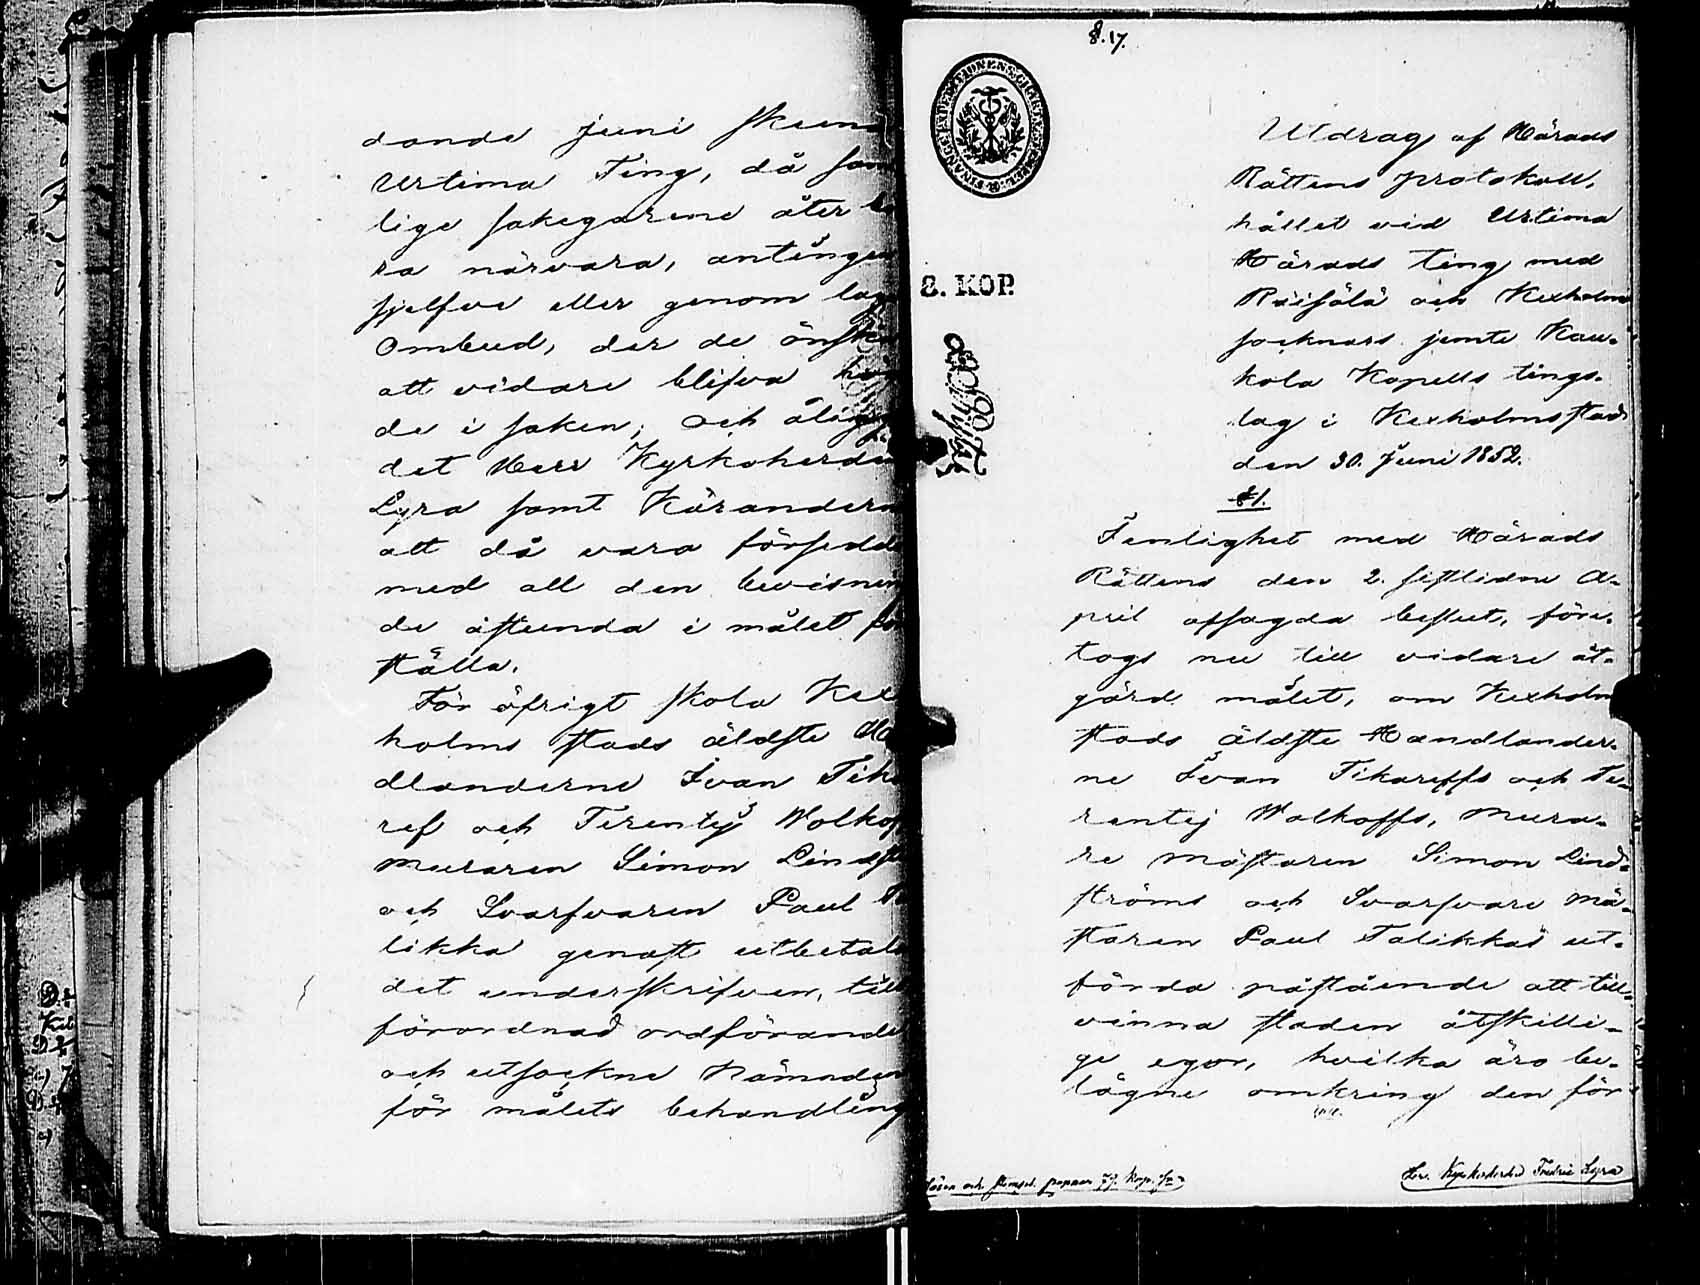 dande Juni
Urtima Ting, då
lige sakegarene åter
ra närvara, antingen
sjelfve eller genom
Ombud, der de
att vidare blifva
de i saken; och
det Herr Kyrkoherden
Lyra samt Käranderne
att då vara försedde
med all den bevisning
de åstunda i målet
ställa.
För öfrigt skola Kex
holms stads äldste
dlanderne Ivan
ref och Terentij Wolkoff
muraren Simon
och Svarfvaren Paul
likka genast utbetala
det underskrifven, till
förordnad ordförande
och utsockne Nämnden
för målets behandling
8.17.
FINANCE EXPEDITIONENS CHARTÆ
8. KOP.
Utdrag af Härads
Rättens protokoll,
hållet vid Urtima
Härads ting med
Räisälä och Kexholms
socknars jemte Kau-
kola Kapells tings-
lag i Kexholms stad
den 30. Juni 1852.
§1.
I enlighet med Härads
Rättens den 2. sistlidne A-
pril afsagda beslut, före-
togs nu till vidare åt-
gärd målet, om Kexholms
stads äldste Handlander-
ne Ivan Tikareffs och Te-
rentij Wolkoffs, mura-
re mästaren Simon Lind-
ströms och Svarfvare mä-
staren Paul Talikkas ut-
förda påstående att till-
vinna staden åtskilli-
ge egor, hvilka äro be-
lägne omkring den för
Lösen och stämpel. papper
Herr Kyrkoherden Fredric Lyra